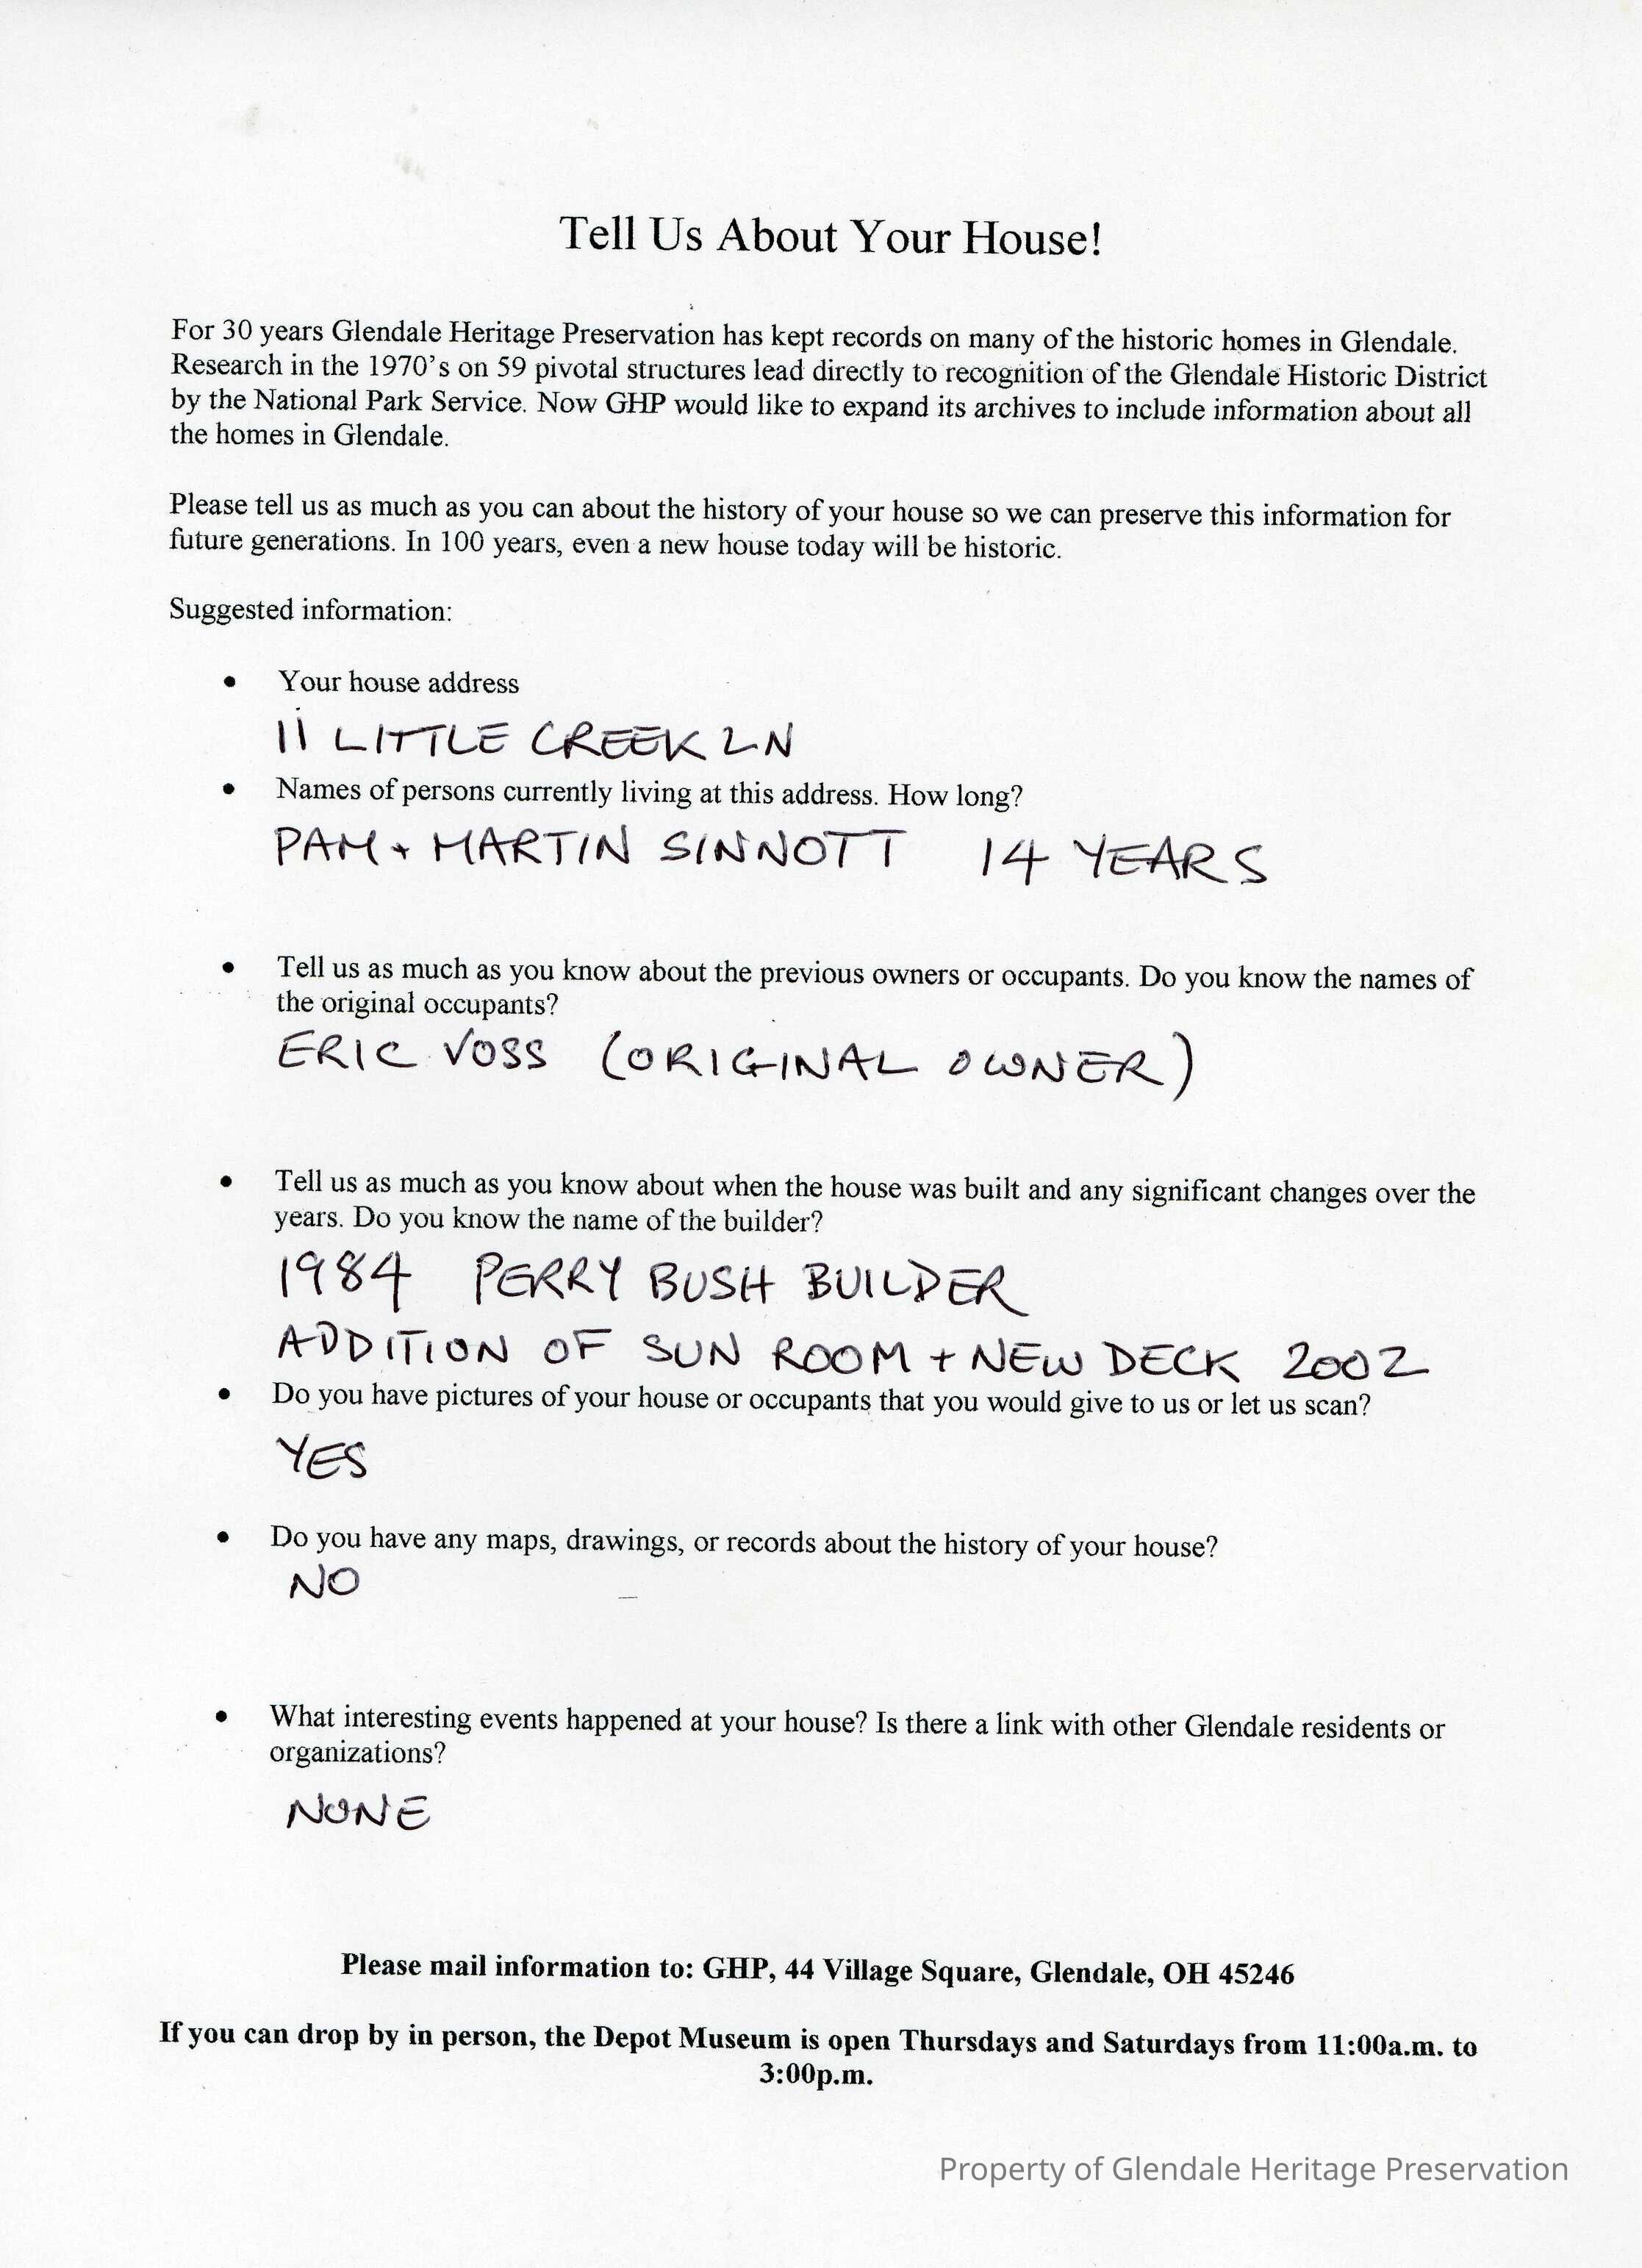 Tell Us About Your House!
For 30 years Glendale Heritage Preservation has kept records on many of the historic homes in Glendale.
Research in the 1970's on 59 pivotal structures lead directly to recognition of the Glendale Historic District
by the National Park Service. Now GHP would like to expand its archives to include information about all
the homes in Glendale.
Please tell us as much as you can about the history of your house so we can preserve this information for
future generations. In 100 years, even a new house today will be historic.
Suggested information:
• Your house address
11 LITTLE CREEK LN
• Names of persons currently living at this address. How long?
PAM + MARTIN SINNOTT 14 YEARS
• Tell us as much as you know about the previous owners or occupants. Do you know the names of
the original occupants?
ERIC VOSS (ORIGINAL OWNER)
• Tell us as much as you know about when the house was built and any significant changes over the
years. Do you know the name of the builder?
1984 PERRY BUSH BUILDER
ADDITION OF SUN ROOM + NEW DECK 2002
• Do you have pictures of your house or occupants that you would give to us or let us scan?
YES
• Do you have any maps, drawings, or records about the history of your house?
NO
• What interesting events happened at your house? Is there a link with other Glendale residents or
organizations?
NONE
Please mail information to: GHP, 44 Village Square, Glendale, OH 45246
If you can drop by in person, the Depot Museum is open Thursdays and Saturdays from 11:00a.m. to
3:00p.m.
Property of Glendale Heritage Preservation